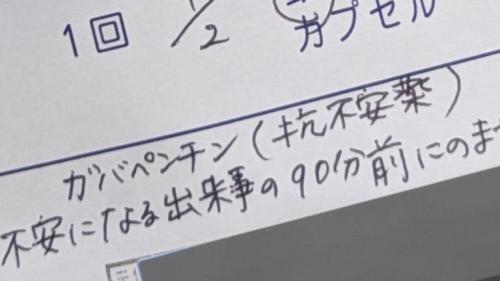 1回 1/2 カプセル
ガバペンチン(抗不安薬)
不安になる出来事の90分前にのま